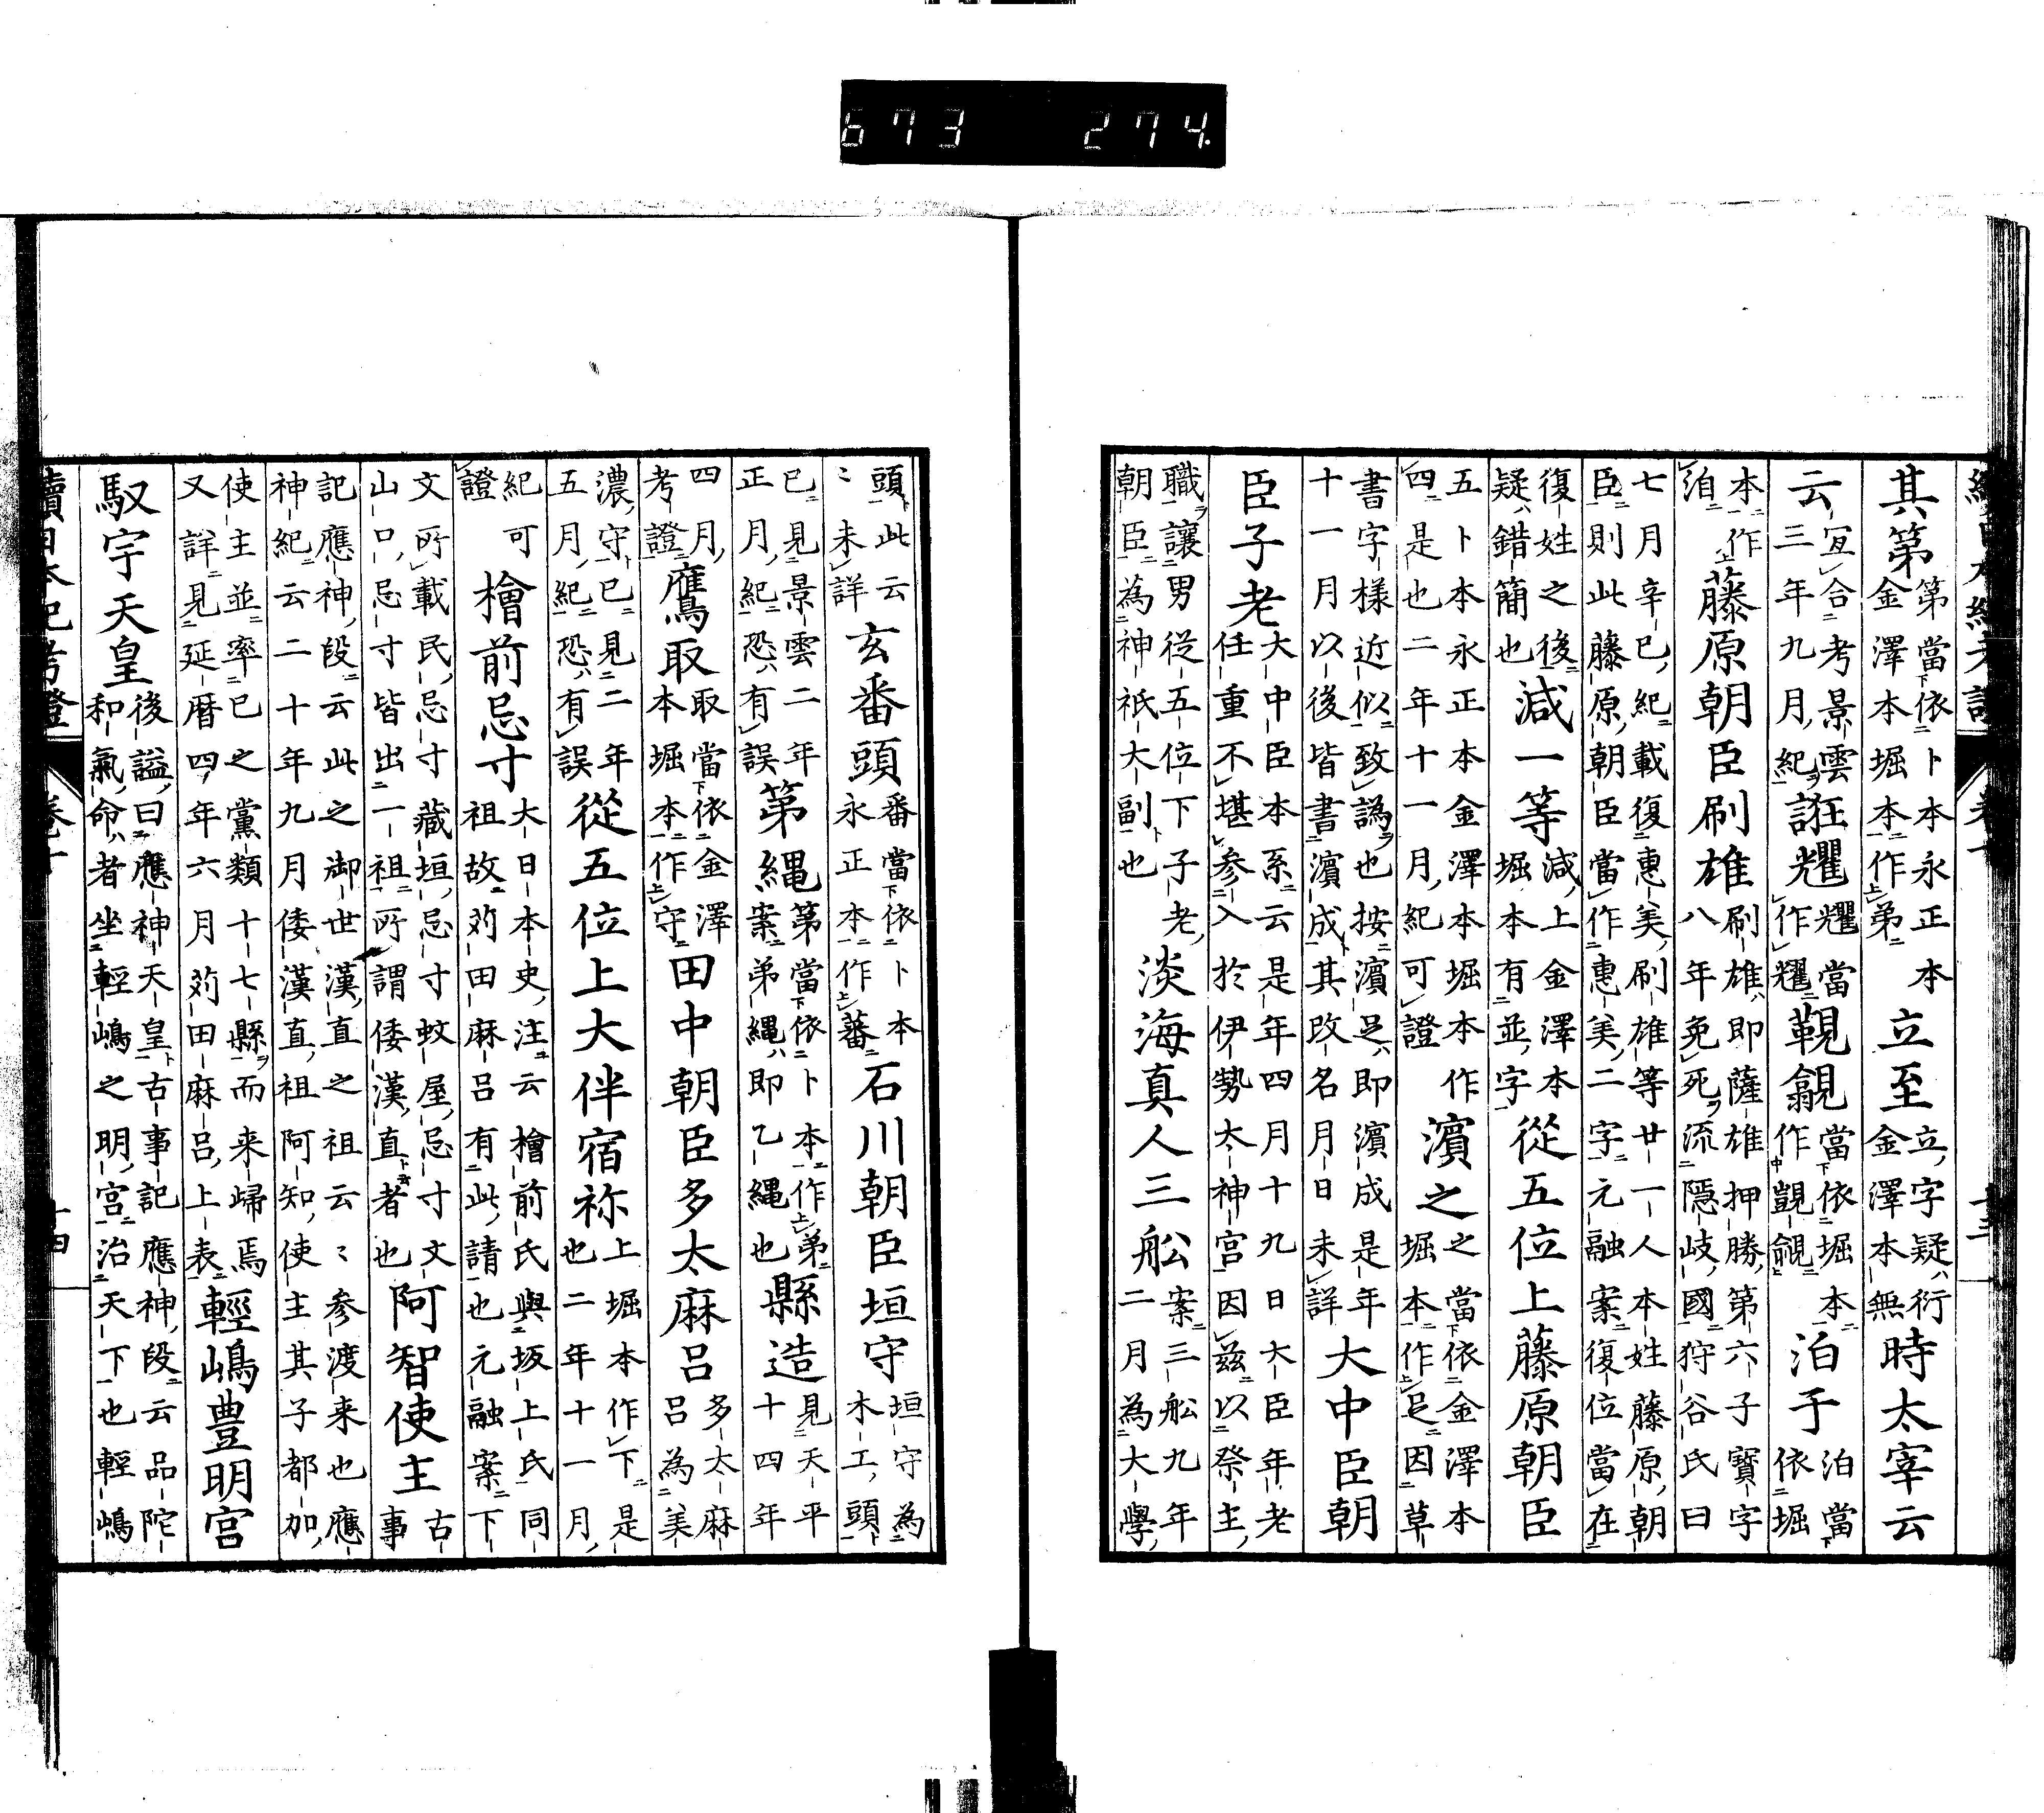 673 274.
其第 第當依卜本永正本 金澤本堀本作弟 立至 立字疑衍 金澤本無 時太宰云
云 宜合考景雲 三年九月紀 誑耀 耀當 作耀 覬覦 當依堀本 作覬覦 泊于 泊當 依堀
本作 洎 藤原朝臣刷雄 刷雄即薩雄押勝第六子寶字 八年免死流隱岐國狩谷氏曰
七月辛巳紀載復惠美刷雄等廿一人本姓藤原朝 臣則此藤原朝臣當作惠美二字元融案復位當在
復姓之後 疑錯簡也 減一等 減上金澤本 堀本有並字 從五位上藤原朝臣
五卜本永正本金澤本堀本作 四是也二年十一月紀可證 濵之 之當依金澤本 堀本作足因草
書字樣近似致譌也按濵足即濵成是年 十一月以後皆書濵成其改名月日未詳 大中臣朝
臣子老 大中臣本系云是年四月十九日大臣年老 任重不堪参入於伊勢太神宮因兹以祭主
職讓男從五位下子老 朝臣為神祇大副也 淡海真人三舩 案三舩九年 二月為大學
頭此云 〻未詳 玄番頭 番當依卜本 永正本作蕃 石川朝臣垣守 垣守為 木工頭
已見景雲二年 正月紀恐有誤 第縄 第當依卜本作弟 案弟縄即乙縄也 縣造 見天平 十四年
四月 考證 鷹取 取當依金澤 本堀本作守 田中朝臣多太麻呂 多太麻 呂為美
濃守已見二年 五月紀恐有誤 從五位上大伴宿祢 上堀本作下是 也二年十一月
紀可 證 檜前忌寸 大日本史注云檜前氏與坂上氏同 祖故苅田麻呂有此請也元融案下
文所載民忌寸藏垣忌寸蚊屋忌寸文 山口忌寸皆出一祖所謂倭漢直者也 阿智使主 古 事
記應神段云此之御世漢直之祖云〻参渡来也應 神紀云二十年九月倭漢直祖阿知使主其子都加
使主並率已之黨類十七縣而来歸焉 又詳見延暦四年六月苅田麻呂上表 輕嶋豊明宫
馭宇天皇 後謚曰應神天皇古事記應神段云品陀 和氣命者坐輕嶋之明宫治天下也輕嶋
續日本紀考證 卷十 十四